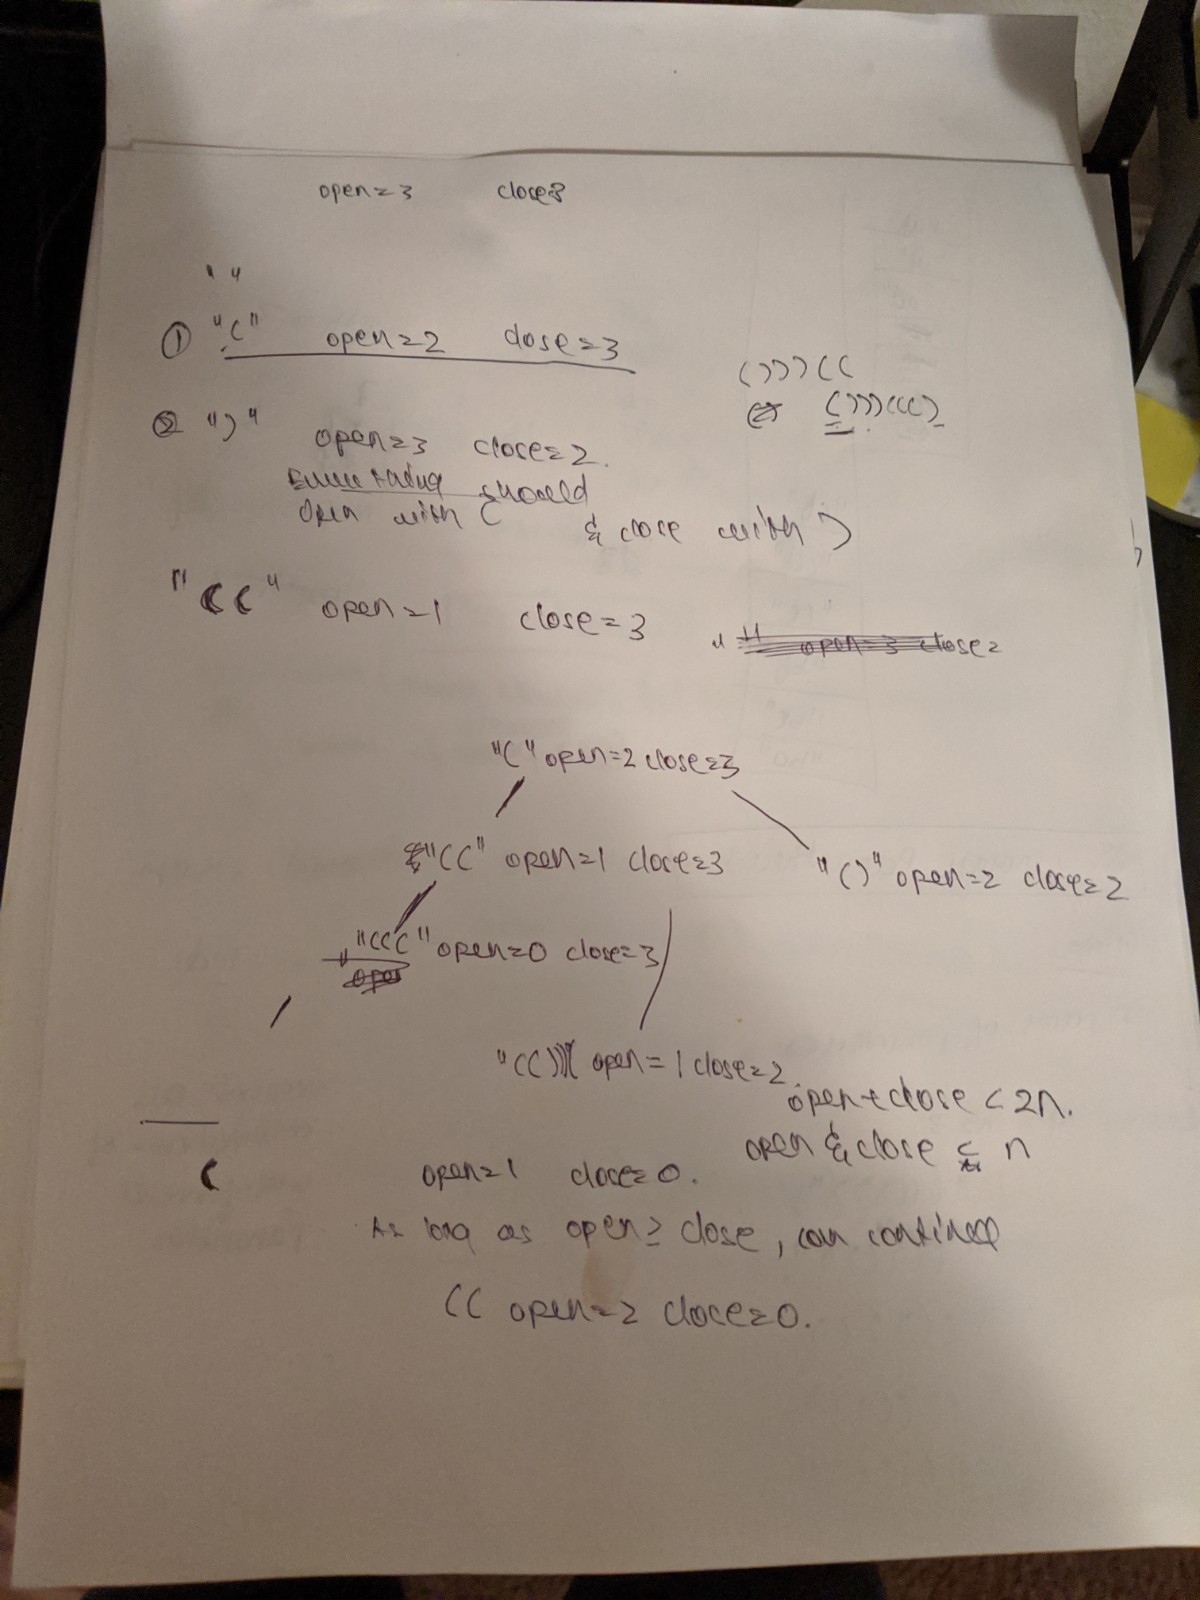 open=3 close=3
" "
① "(" open=2 close=3
()))((
② ")" open=3 close=2.
()))((()
should
open with (
& close with )
"((" open=1 close=3
" open=3 close=
"(" open=2 close=3
"((" open=1 close=3
"()" open=2 close=2
"(((" open=0 close=3
open
"(() open=1 close=2
open+close < 2n.
open & close ≤ n
( open=1 close=0.
As long as open ≥ close, can continue
(( open=2 close=0.